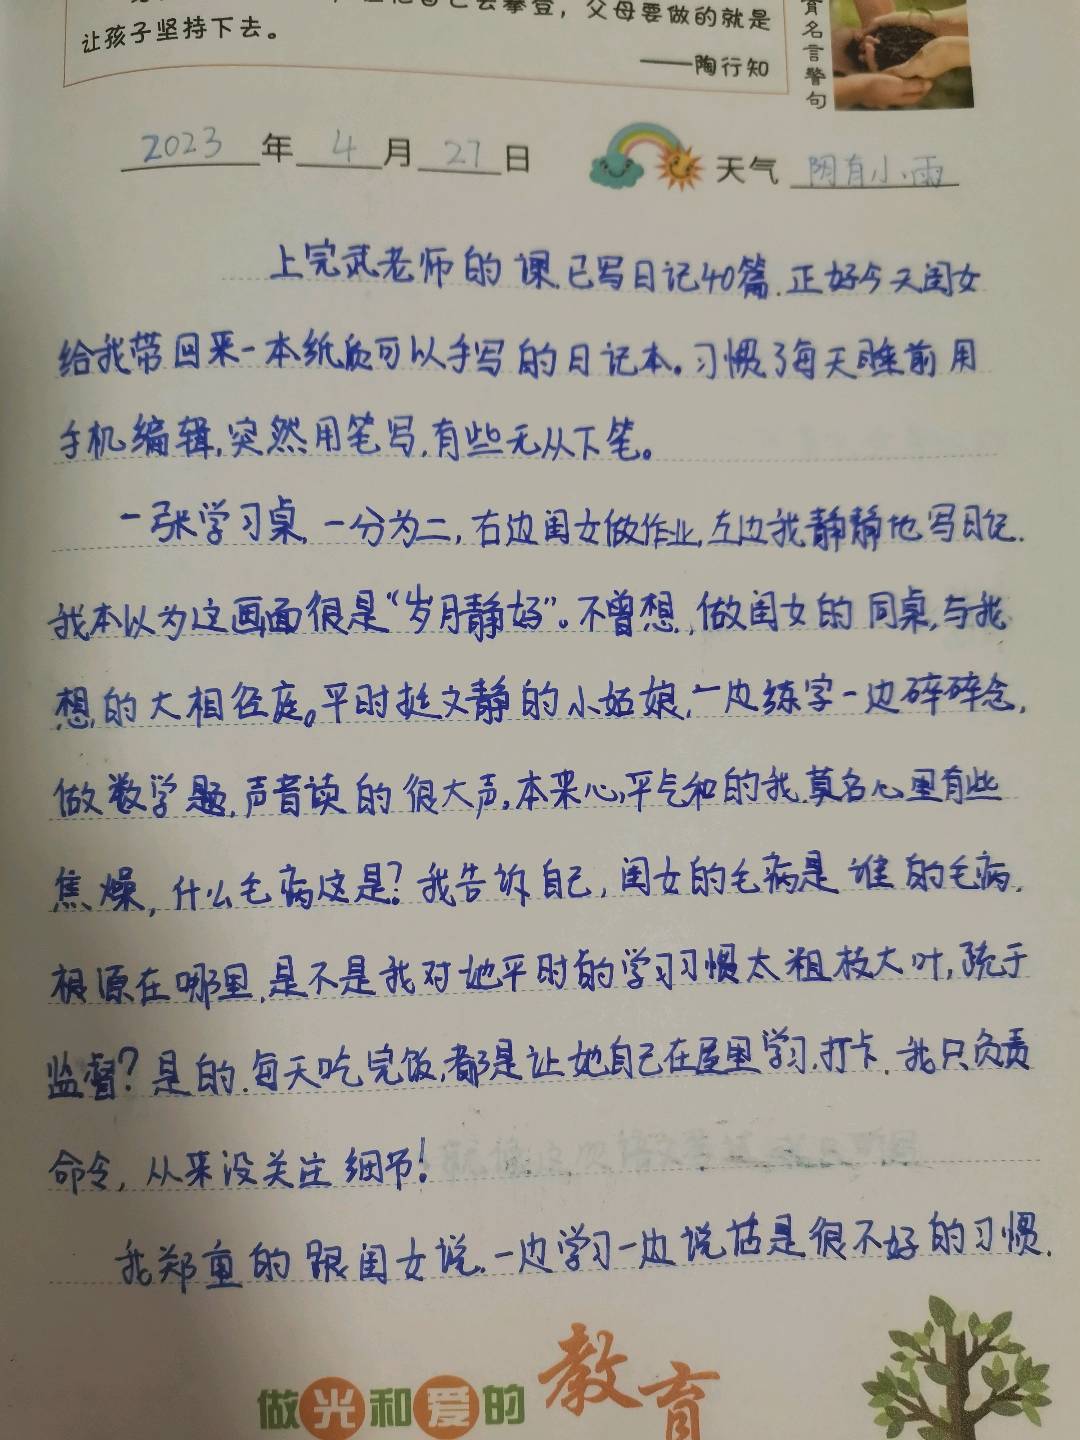 去攀登，父母要做的就是
让孩子坚持下去。
——陶行知
名言警句
2023年4月27日 天气 阴有小雨
上完武老师的课已写日记40篇.正好今天闺女
给我带回来一本纸质可以手写的日记本。习惯了每天睡前用
手机编辑,突然用笔写,有些无从下笔。
一张学习桌,一分为二,右边闺女做作业,左边我静静地写日记.
我本以为这画面很是“岁月静好”。不曾想,做闺女的同桌,与我
想的大相径庭。平时挺文静的小姑娘,一边练字一边碎碎念,
做数学题,声音读的很大声,本来心平气和的我,莫名心里有些
焦燥,什么毛病这是?我告诉自己,闺女的毛病是谁的毛病,
根源在哪里,是不是我对她平时的学习习惯太粗枝大叶,疏于
监督?是的.每天吃完饭,都是让她自己在屋里学习,打卡.我只负责
命令,从来没关注细节!
我郑重的跟闺女说.一边学习一边说话是很不好的习惯.
做光和爱的教育